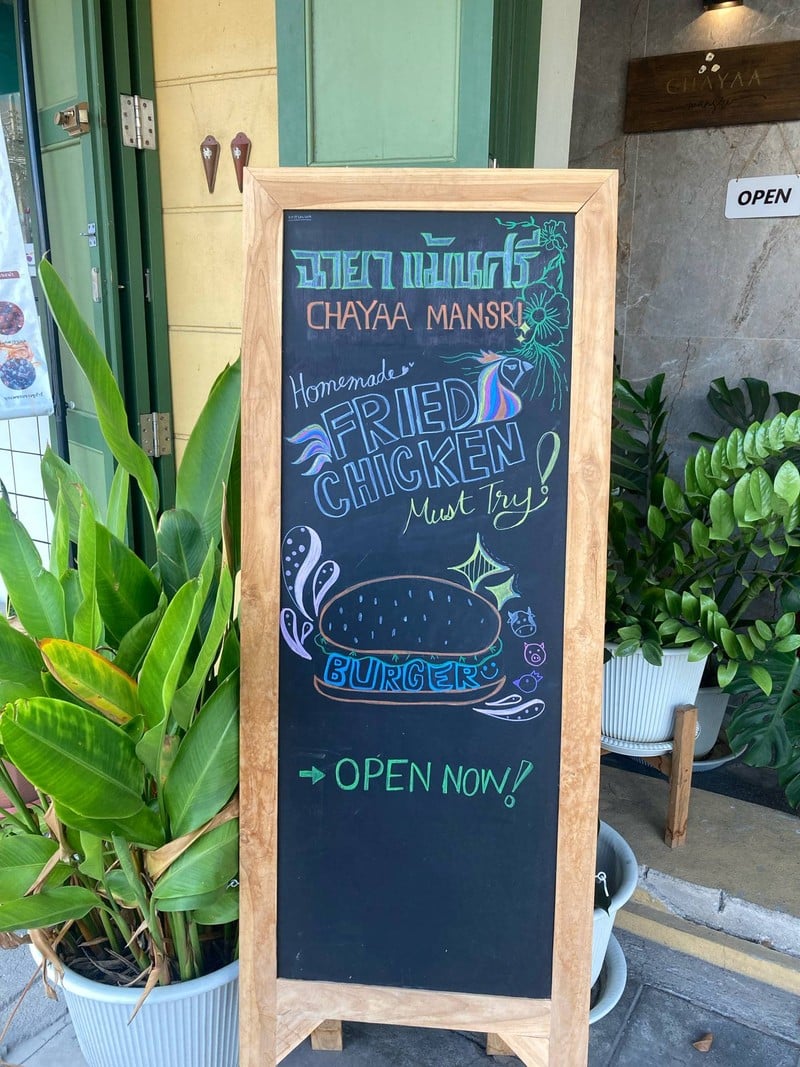 ฉายา แม้นศรี
CHAYAA MANSRI
Homemade
FRIED
CHICKEN
Must Try!
BURGER
→ OPEN NOW!
CHAYAA
mansri
OPEN